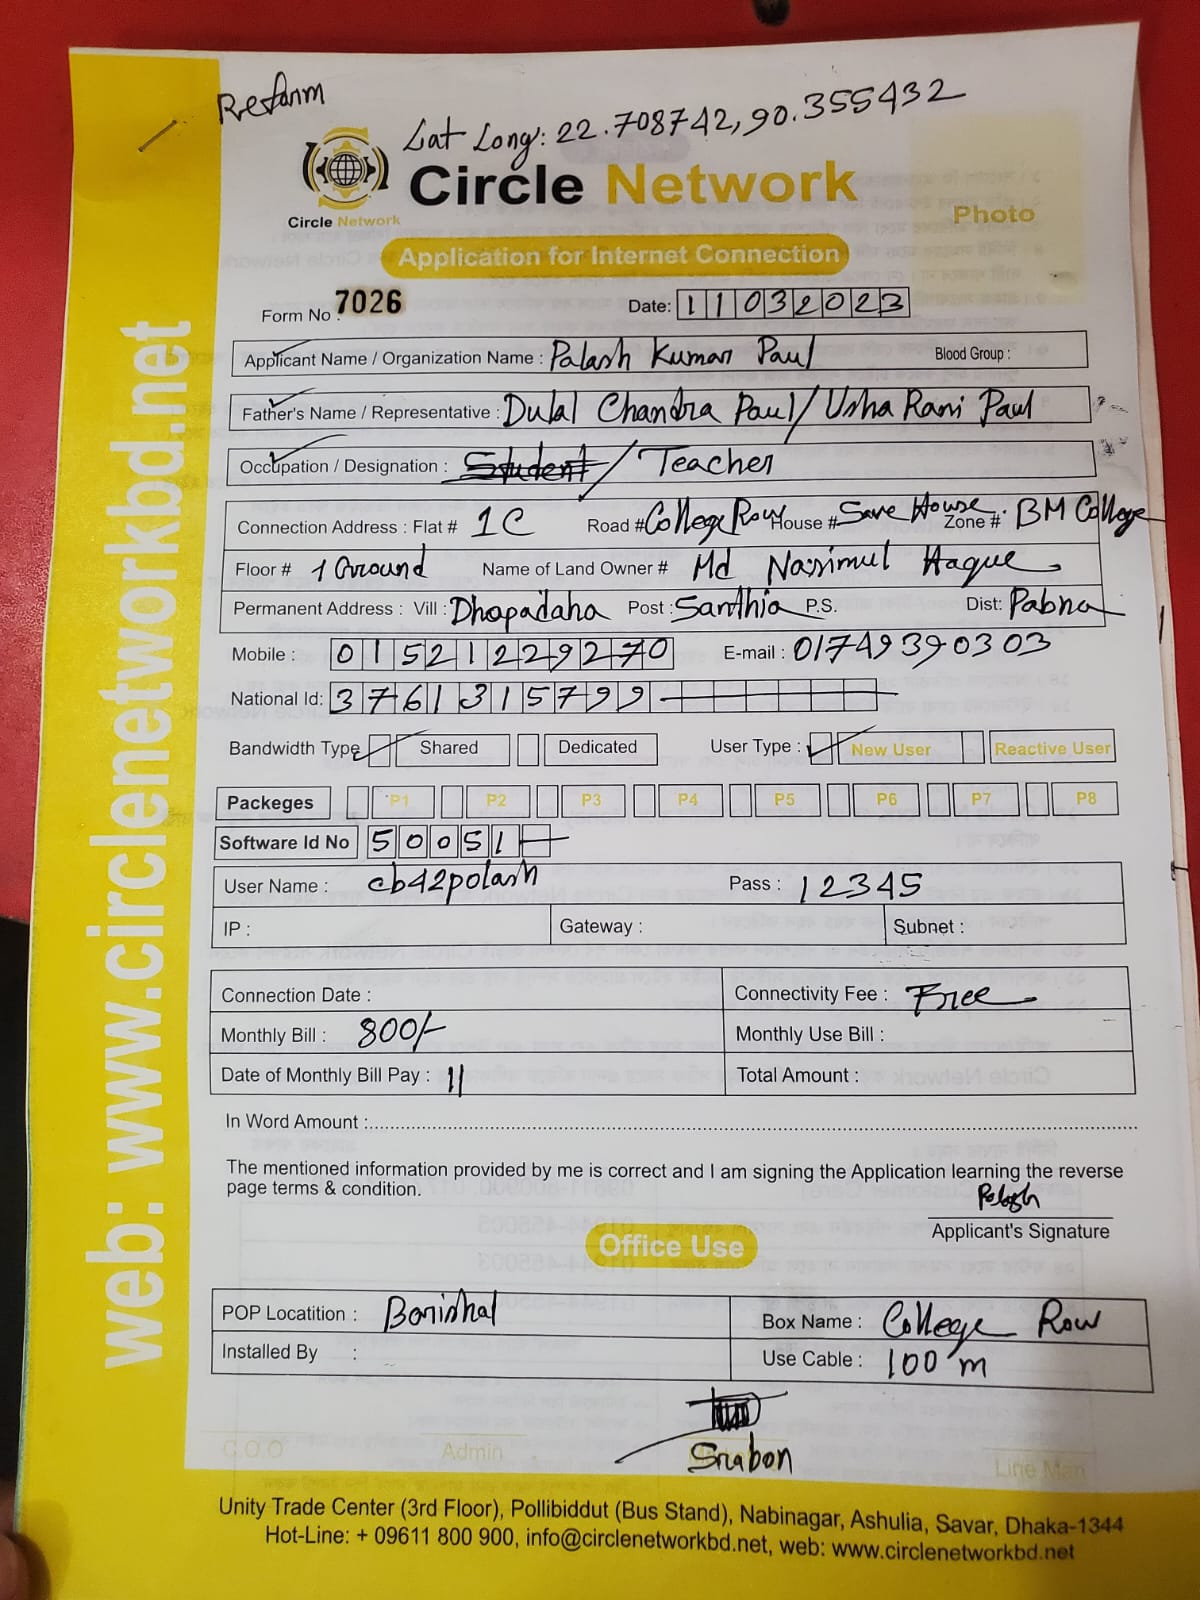 Reform
Lat Long: 22.708742, 90.355432
Circle Network
Circle Network
Photo
Application for Internet Connection
Form No : 7026 Date: 11032023
Applicant Name / Organization Name : Palash Kumar Paul Blood Group :
Father's Name / Representative : Dulal Chandra Paul/Usha Rani Paul
Occupation / Designation : Student / Teacher
Connection Address : Flat # 1C Road # College Row House # Save House Zone # BM College
Floor # 1 Ground Name of Land Owner # Md Nasimul Haque
Permanent Address : Vill : Dhopadaha Post : Santhia P.S. Dist: Pabna
Mobile : 01521229270 E-mail : 01749390303
National Id: 3761315799
Bandwidth Type Shared Dedicated User Type : New User Reactive User
Packeges P1 P2 P3 P4 P5 P6 P7 P8
Software Id No 50051
User Name : cb42polash Pass : 12345
IP : Gateway : Subnet :
Connection Date : Connectivity Fee : Free
Monthly Bill : 800/- Monthly Use Bill :
Date of Monthly Bill Pay : 11 Total Amount :
In Word Amount :
The mentioned information provided by me is correct and I am signing the Application learning the reverse
page terms & condition.
Palash
Applicant's Signature
Office Use
POP Locatition : Barishal Box Name : College Row
Installed By : Use Cable : 100 m
Srabon
C.O.O Admin Line Man
Unity Trade Center (3rd Floor), Pollibiddut (Bus Stand), Nabinagar, Ashulia, Savar, Dhaka-1344
Hot-Line: + 09611 800 900, info@circlenetworkbd.net, web: www.circlenetworkbd.net
web: www.circlenetworkbd.net